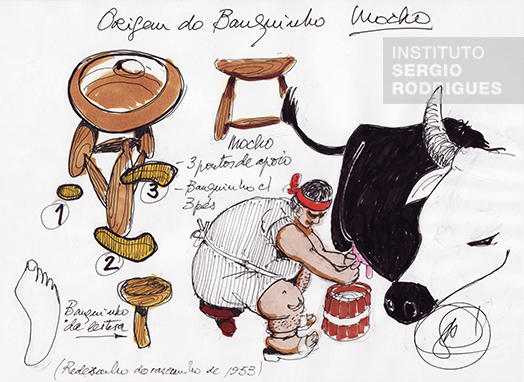 Origem do Banquinho Mocho
INSTITUTO
SERGIO
RODRIGUES
Mocho
- 3 pontos de apoio
- Banquinho c/
3 pés
1
3
2
Banquinho
de leitura
(Redesenho do rascunho de 1953)